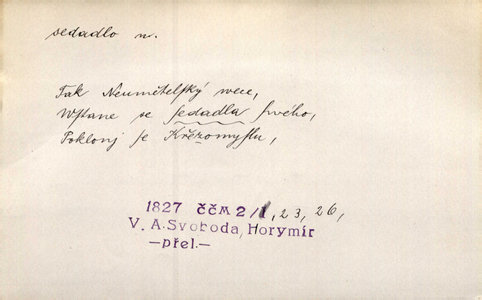 sedadlo n.
Tak Neumětelſký wece,
Wſtane se ſedadla ſwého,
Poklonj ſe Křezomyſlu,
1827 ČČM 2/1, 23, 26,
V. A. Svoboda, Horymír
—přel.—